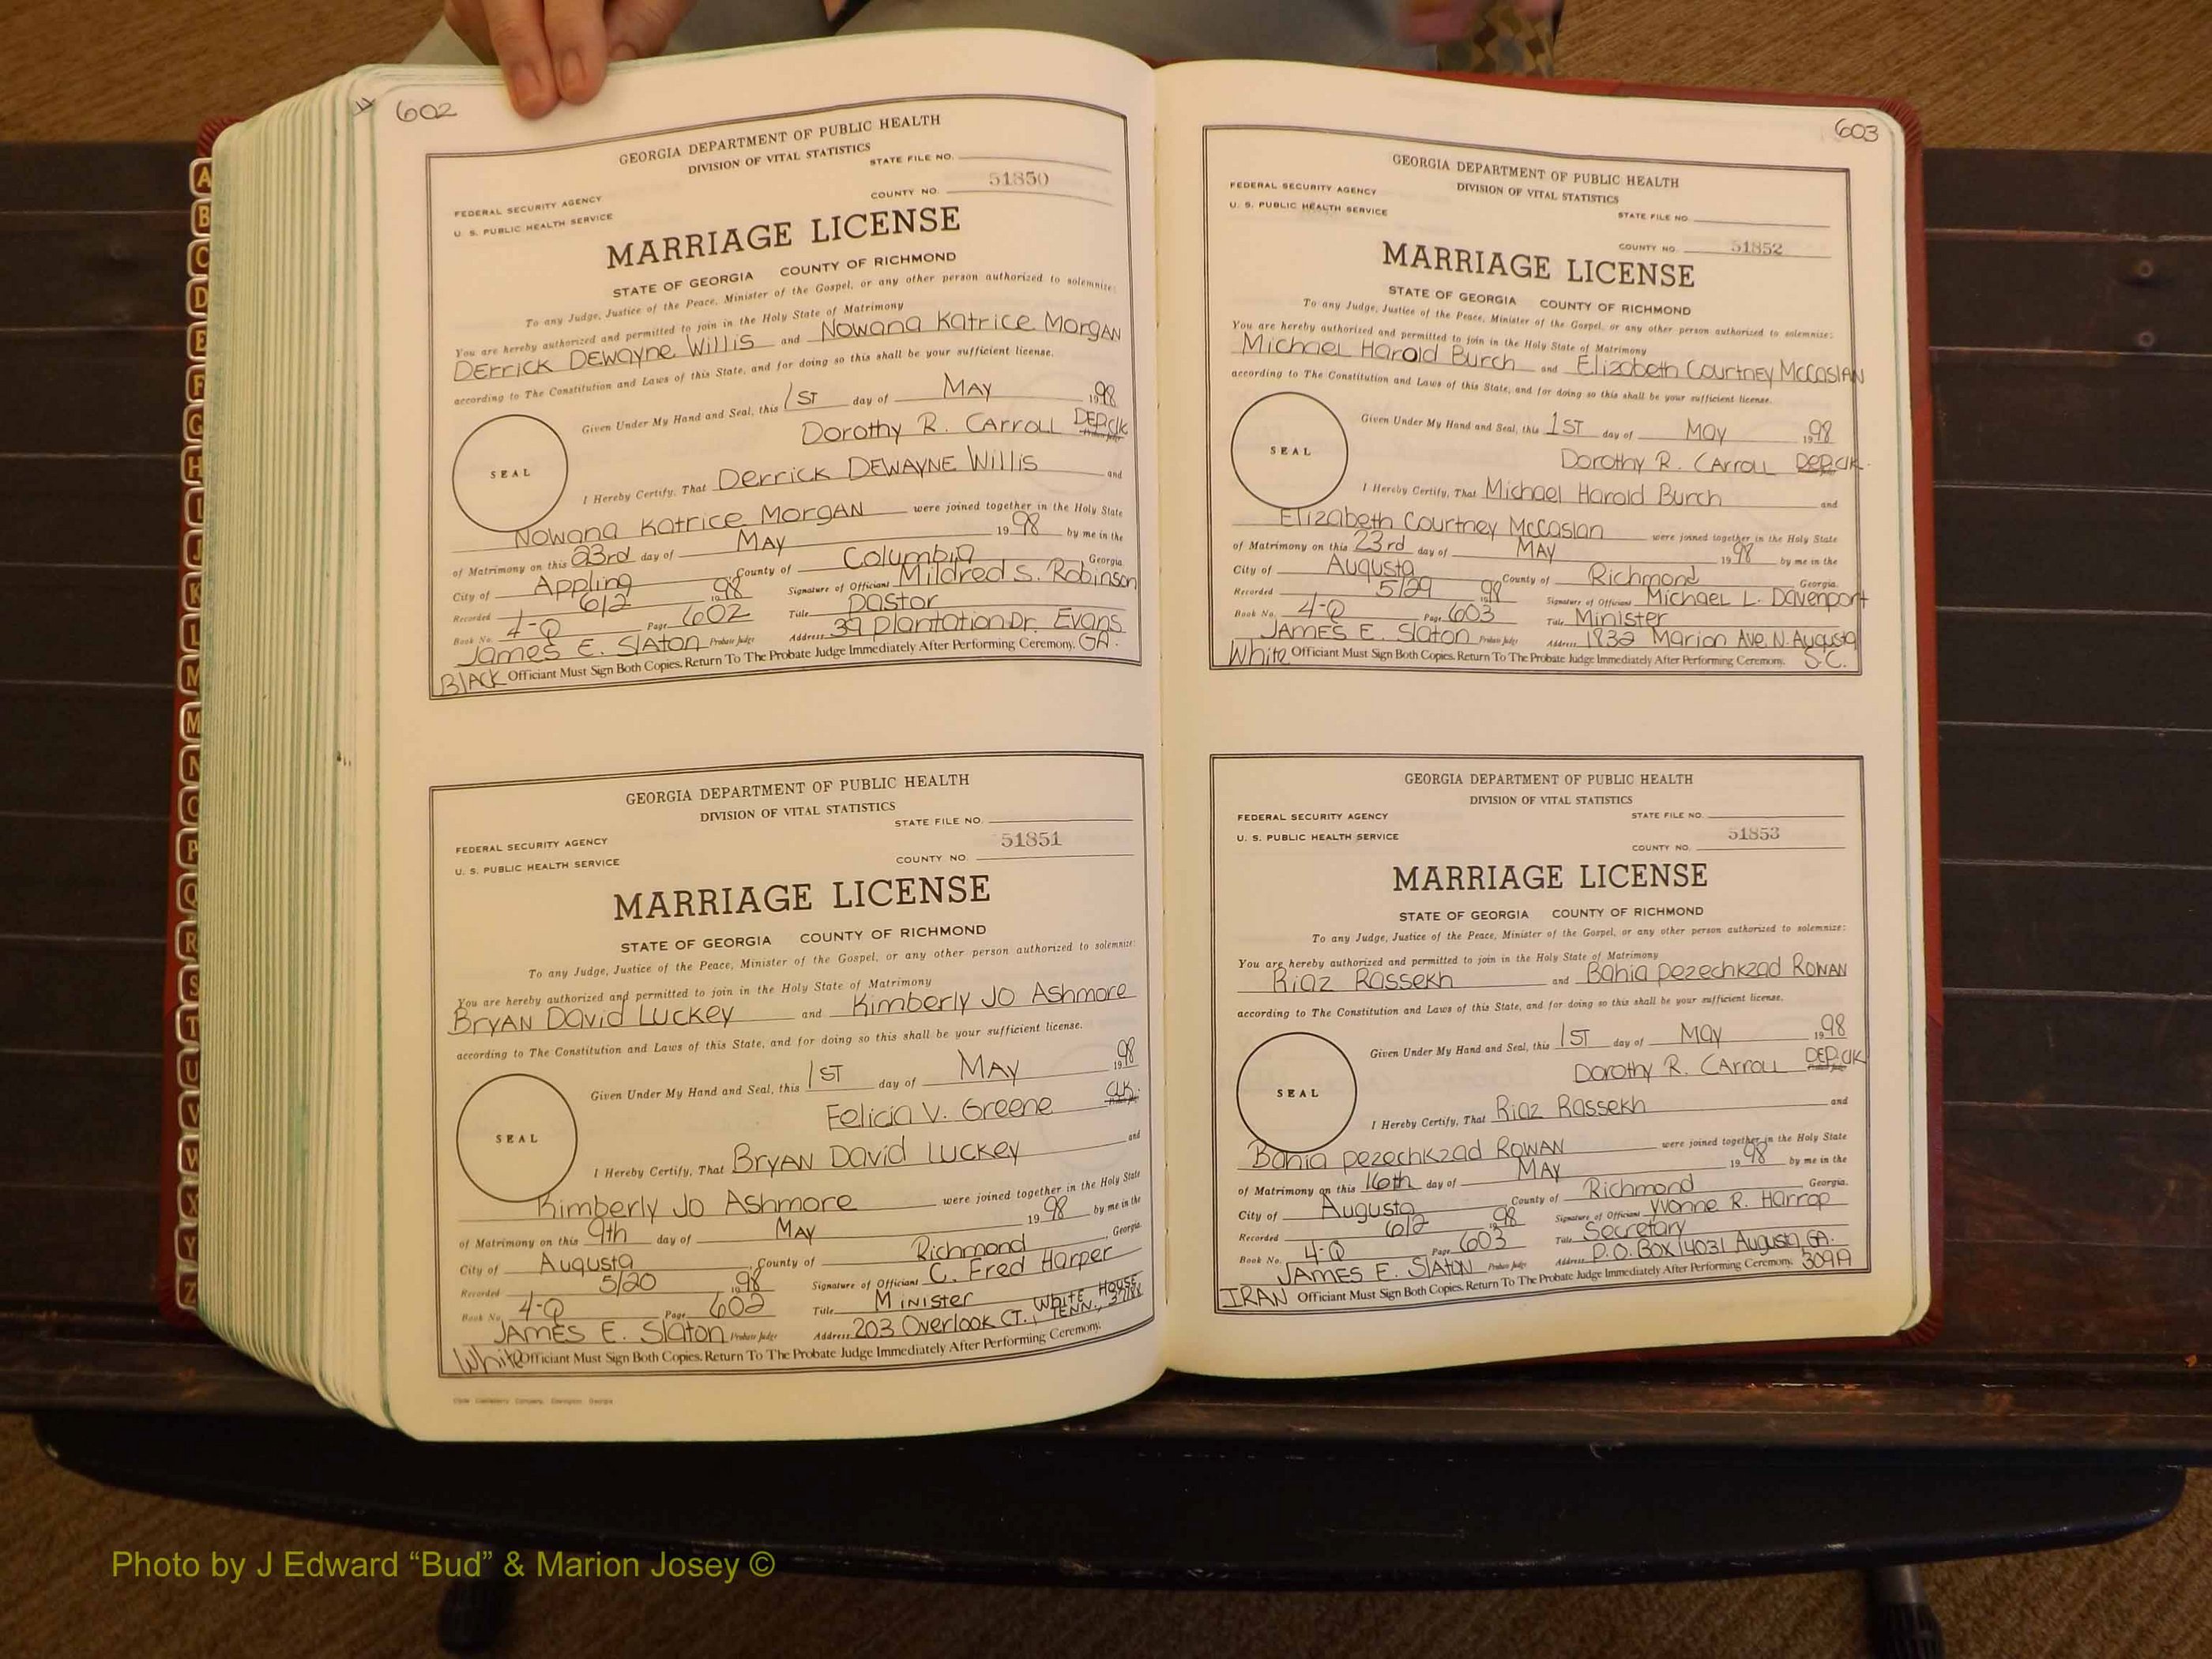 602
GEORGIA DEPARTMENT OF PUBLIC HEALTH
DIVISION OF VITAL STATISTICS
STATE FILE NO.
FEDERAL SECURITY AGENCY
COUNTY NO. 51850
U. S. PUBLIC HEALTH SERVICE
MARRIAGE LICENSE
STATE OF GEORGIA COUNTY OF RICHMOND
To any Judge, Justice of the Peace, Minister of the Gospel, or any other person authorized to solemnize:
You are hereby authorized and permitted to join in the Holy State of Matrimony
DErrick DEWayne Willis and Nowana Katrice Morgan
according to The Constitution and Laws of this State, and for doing so this shall be your sufficient license.
Given Under My Hand and Seal, this 1ST day of May 1998
Dorothy R. Carroll DEP.Clk
SEAL
I Hereby Certify, That Derrick DEWAYNE Willis and
Nowana Katrice Morgan were joined together in the Holy State
of Matrimony on this 23rd day of May 1998 by me in the
City of Appling County of Columbia Georgia
Recorded 6/2 1998 Signature of Officiant Mildred S. Robinson
Book No. 4-Q Page 602 Title Pastor
James E. Slaton Probate Judge Address 39 Plantation Dr. Evans GA.
BLACK Officiant Must Sign Both Copies. Return To The Probate Judge Immediately After Performing Ceremony.
GEORGIA DEPARTMENT OF PUBLIC HEALTH
DIVISION OF VITAL STATISTICS
STATE FILE NO.
FEDERAL SECURITY AGENCY
51851
U. S. PUBLIC HEALTH SERVICE
COUNTY NO.
MARRIAGE LICENSE
STATE OF GEORGIA COUNTY OF RICHMOND
To any Judge, Justice of the Peace, Minister of the Gospel, or any other person authorized to solemnize:
You are hereby authorized and permitted to join in the Holy State of Matrimony
Bryan David Luckey and Kimberly Jo Ashmore
according to The Constitution and Laws of this State, and for doing so this shall be your sufficient license.
Given Under My Hand and Seal, this 1ST day of May 1998
Felicia V. Greene CLK.
SEAL
I Hereby Certify, That Bryan David Luckey and
Kimberly Jo Ashmore were joined together in the Holy State
of Matrimony on this 9th day of May 1998 by me in the
City of Augusta County of Richmond, Georgia.
Recorded 5/20 1998 Signature of Officiant C. Fred Harper
Book No. 4-Q Page 602 Title Minister
James E. Slaton Probate Judge Address 203 Overlook CT., White House TENN.,
White Officiant Must Sign Both Copies. Return To The Probate Judge Immediately After Performing Ceremony.
603
GEORGIA DEPARTMENT OF PUBLIC HEALTH
DIVISION OF VITAL STATISTICS
FEDERAL SECURITY AGENCY
U. S. PUBLIC HEALTH SERVICE
STATE FILE NO.
COUNTY NO. 51852
MARRIAGE LICENSE
STATE OF GEORGIA COUNTY OF RICHMOND
To any Judge, Justice of the Peace, Minister of the Gospel, or any other person authorized to solemnize:
You are hereby authorized and permitted to join in the Holy State of Matrimony
Michael Harold Burch and Elizabeth Courtney McCaslan
according to The Constitution and Laws of this State, and for doing so this shall be your sufficient license.
Given Under My Hand and Seal, this 1ST day of May 1998
Dorothy R. Carroll DEP.Clk.
SEAL
I Hereby Certify, That Michael Harold Burch and
Elizabeth Courtney McCaslan were joined together in the Holy State
of Matrimony on this 23rd day of May 1998 by me in the
City of Augusta County of Richmond Georgia.
Recorded 5/29 1998 Signature of Officiant Michael L. Davenport
Book No. 4-Q Page 603 Title Minister
James E. Slaton Probate Judge Address 1832 Marion Ave. N. Augusta S.C.
White Officiant Must Sign Both Copies. Return To The Probate Judge Immediately After Performing Ceremony.
GEORGIA DEPARTMENT OF PUBLIC HEALTH
DIVISION OF VITAL STATISTICS
FEDERAL SECURITY AGENCY
STATE FILE NO.
U. S. PUBLIC HEALTH SERVICE
51853
COUNTY NO.
MARRIAGE LICENSE
STATE OF GEORGIA COUNTY OF RICHMOND
To any Judge, Justice of the Peace, Minister of the Gospel, or any other person authorized to solemnize:
You are hereby authorized and permitted to join in the Holy State of Matrimony
Riaz Rassekh and Bahia Pezechkzad Rowan
according to The Constitution and Laws of this State, and for doing so this shall be your sufficient license.
Given Under My Hand and Seal, this 1ST day of May 1998
Dorothy R. Carroll DEP.Clk
SEAL
I Hereby Certify, That Riaz Rassekh and
Bahia Pezechkzad Rowan were joined together in the Holy State
of Matrimony on this 16th day of May 1998 by me in the
City of Augusta County of Richmond Georgia.
Recorded 6/2 1998 Signature of Officiant Yvonne R. Harrop
Book No. 4-Q Page 603 Title Secretary
James E. Slaton Probate Judge Address P.O. Box 14031 Augusta, GA.
IRAN Officiant Must Sign Both Copies. Return To The Probate Judge Immediately After Performing Ceremony.
A
B
C
D
E
F
G
H
I
J
K
L
M
M
N
O
P
Q
R
S
T
U
V
W
X
Y
Z
Photo by J Edward “Bud” & Marion Josey ©